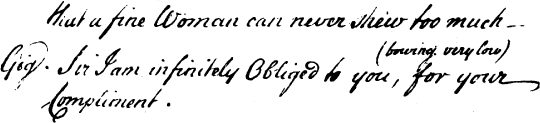 that a fine Woman can never shew too much —
(bowing very low)
Gig. Sir I am infinitely Obliged to you, for your
Compliment.